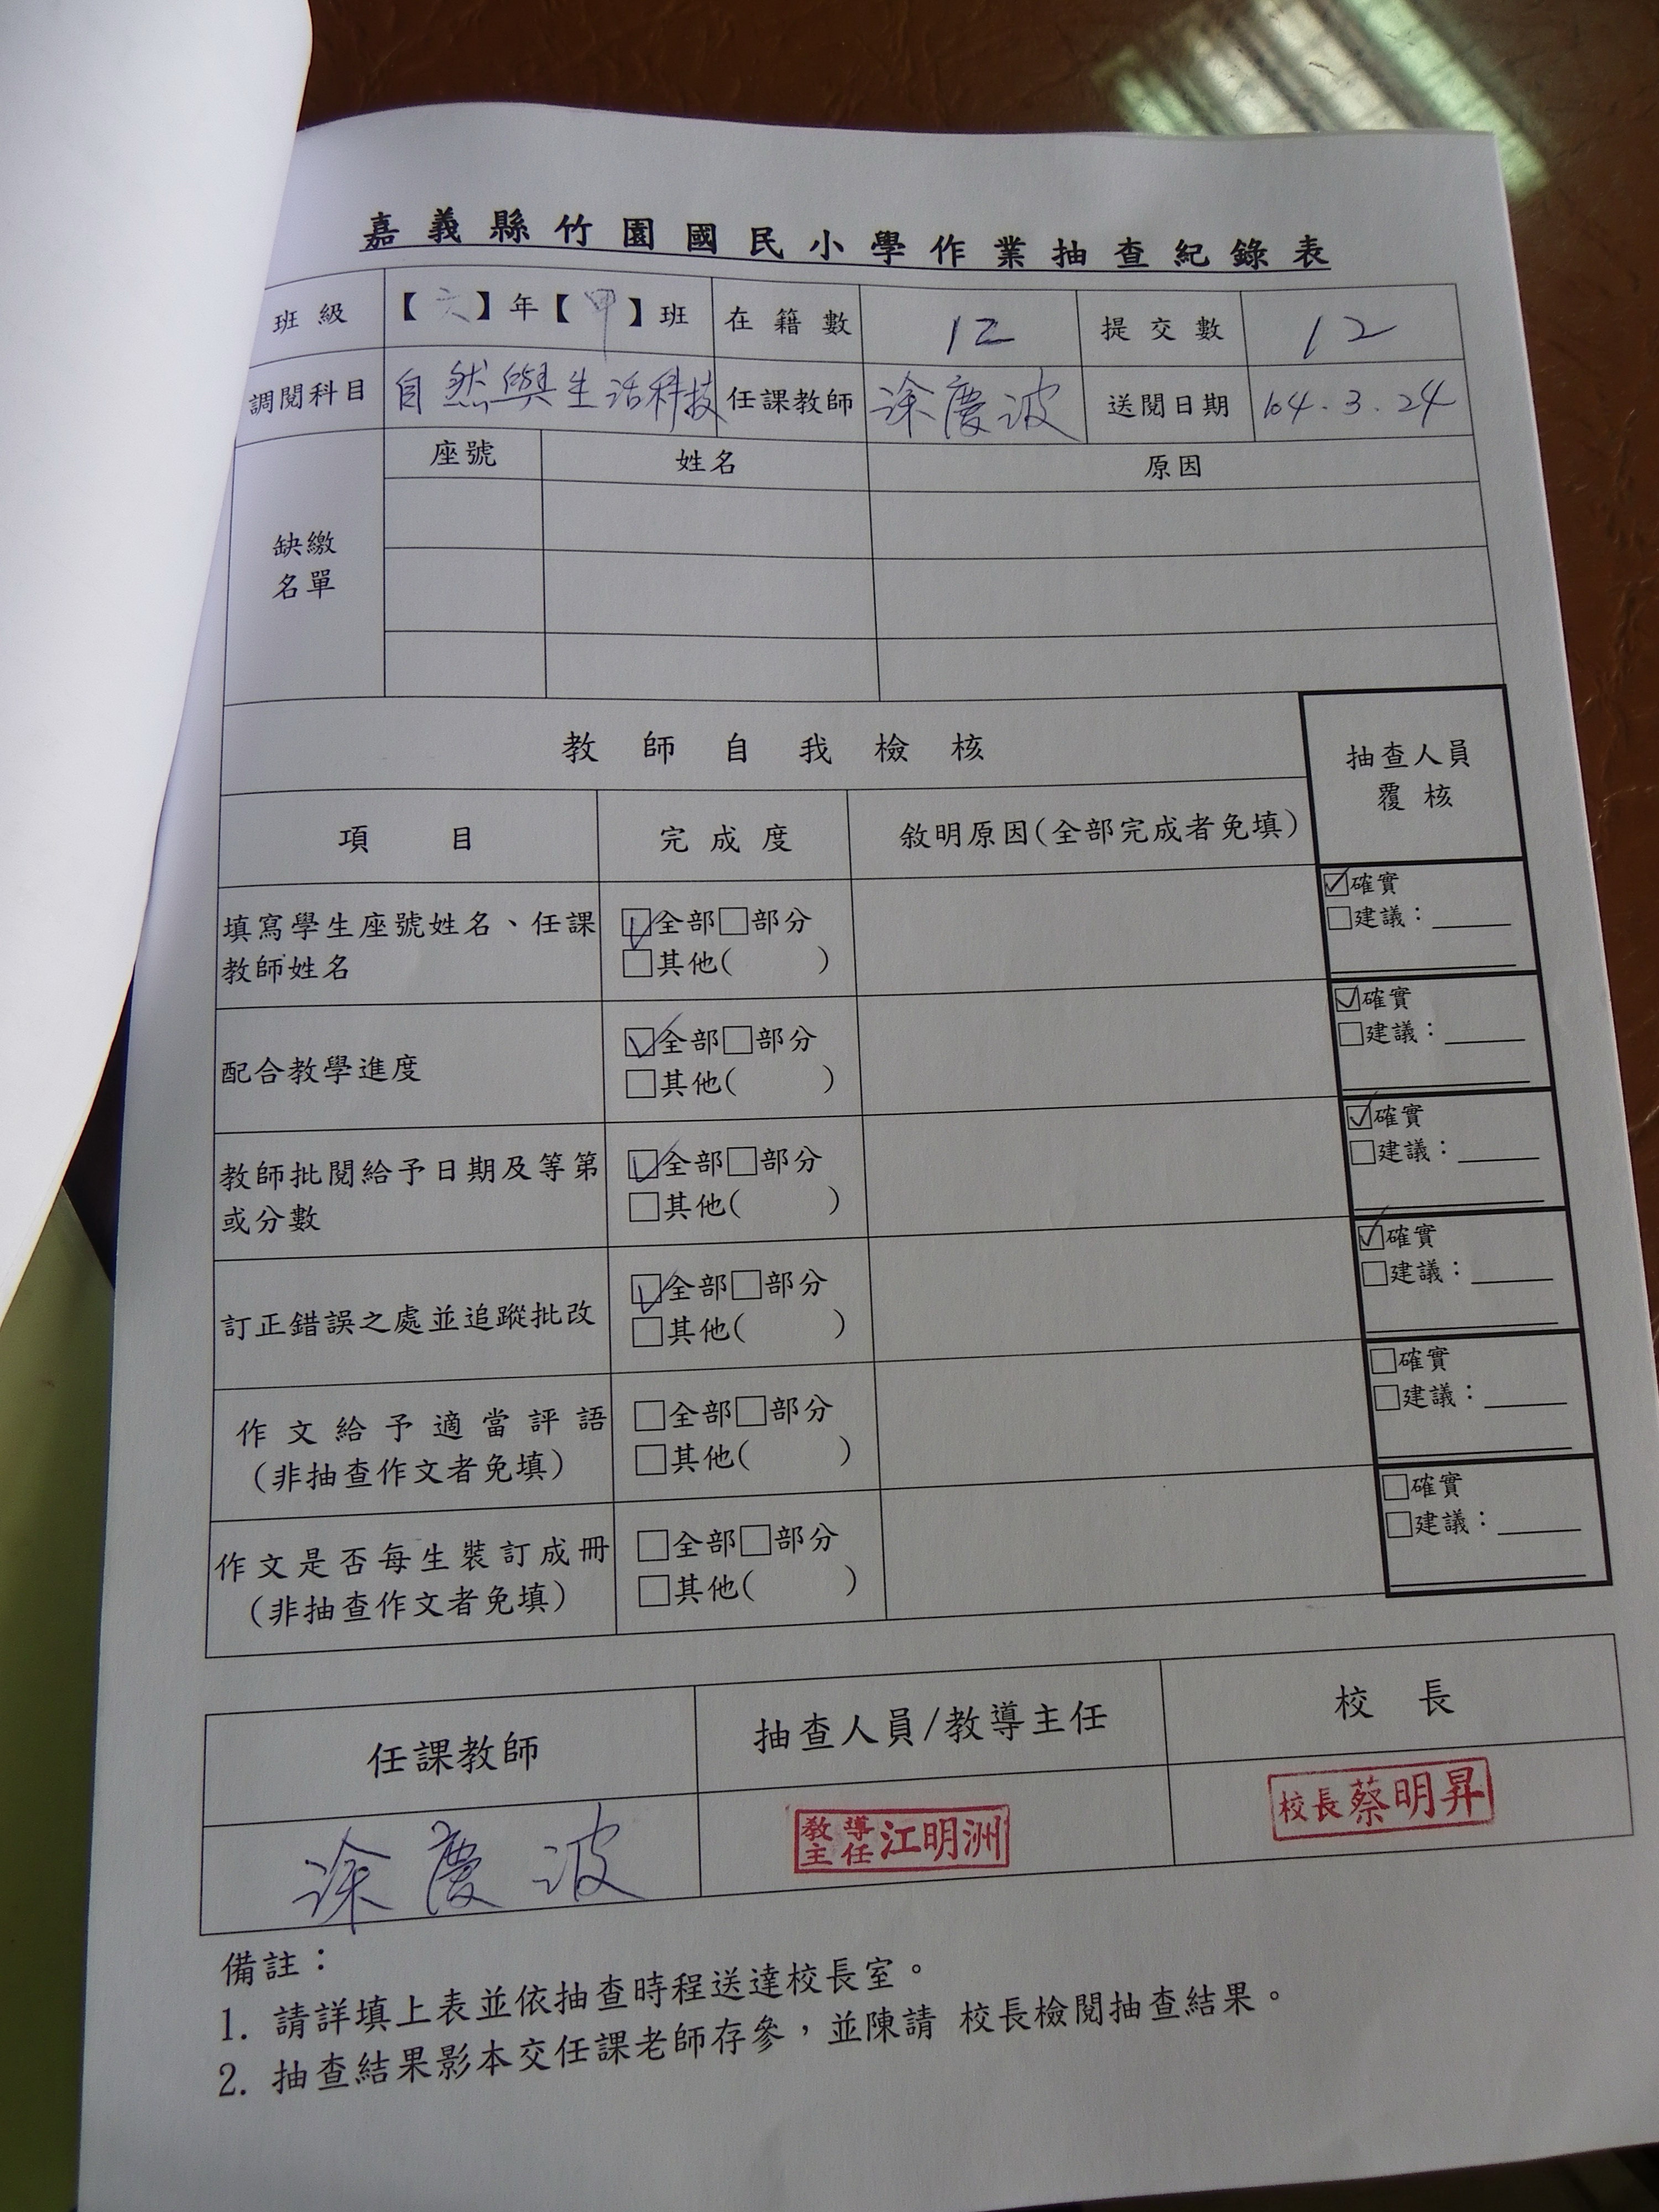 嘉義縣竹園國民小學作業抽查紀錄表
班級 【六】年【甲】班 在籍數 12 提交數 12
調閱科目 自然與生活科技 任課教師 涂慶波 送閱日期 104.3.24
缺繳名單 座號 姓名 原因
教師自我檢核 抽查人員覆核
項目 完成度 敘明原因(全部完成者免填)
填寫學生座號姓名、任課教師姓名 ☑全部□部分 □其他( ) ☑確實 □建議：
配合教學進度 ☑全部□部分 □其他( ) ☑確實 □建議：
教師批閱給予日期及等第或分數 ☑全部□部分 □其他( ) ☑確實 □建議：
訂正錯誤之處並追蹤批改 ☑全部□部分 □其他( ) ☑確實 □建議：
作文給予適當評語(非抽查作文者免填) □全部□部分 □其他( ) □確實 □建議：
作文是否每生裝訂成冊(非抽查作文者免填) □全部□部分 □其他( ) □確實 □建議：
任課教師 抽查人員/教導主任 校長
涂慶波 教導主任江明洲 校長蔡明昇
備註：
1. 請詳填上表並依抽查時程送達校長室。
2. 抽查結果影本交任課老師存參，並陳請 校長檢閱抽查結果。